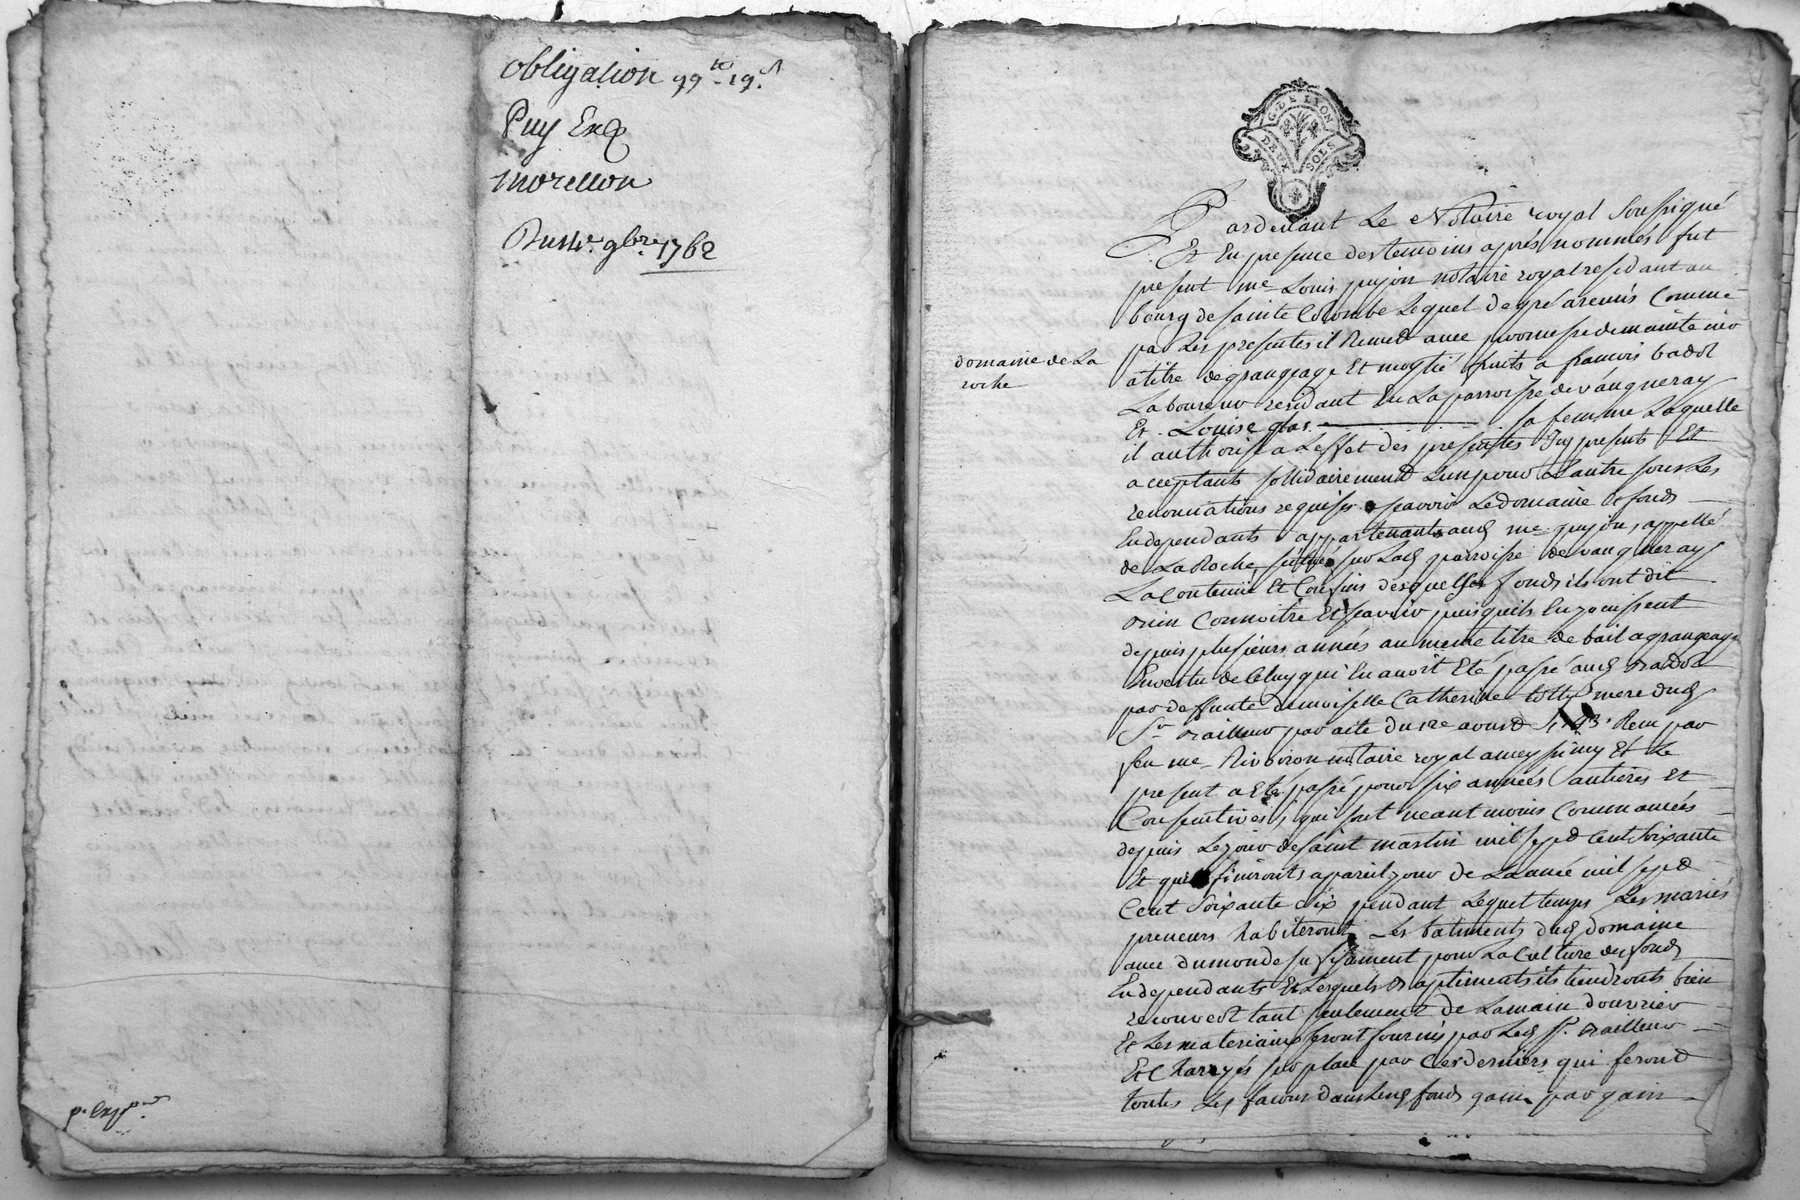 obligation 99 lt 19 s
Puy Exp
morellon
Du 14e 9bre 1762
p. exp.
G. DE LYON
DEUX SOLS
domaine de La
roche
Pardevant Le Notaire royal Soussigné
Et En presence des temoins aprés nommés fut
present me Louis guyon notaire royal residant au
bourg de sainte Colombe Lequel de gré a remis Comme
par Les presentes il Remet avec promesse de maintenir
a titre de grangeage Et moytié fruits a francois badol
Laboureur residant En La parroisse de vaugneray
Et Louise glas sa femme Laquelle
il authorise a Leffet des presentes Icy presents Et
acceptants sollidairement Lun pour Lautre sous Les
renonciations requises scavoir Le domaine Et fonds
En dependants appartenants aud me guyon, appellé
de La Roche, situé sur Lad parroisse de vaugneray
La Contenue Et Confins desquels fonds ils ont dit
bien Connoitre Et scavoir puisquils En jouissent
depuis plusieurs années au meme titre de bail a grangeage
En vertu de Celuy qui En avoit Eté passé aud badol
par deffunte demoiselle Catherine mere dud
Sr bailleur par acte du 12e aoust Recu par
feu me Rivoiron notaire royal a meyssimy Et Le
present a Eté passé pour six années Entieres Et
Consecutives, qui sont neantmoins Commancées
depuis Le jour de saint martin mil sept Cent Soixante
Et qui finironts a pareil jour de Lannée mil sept
Cent Soixante six pendant Lequel temps Les mariés
preneurs habiteront Les batiments dud domaine
avec du monde suffisament pour La Culture des fonds
En dependants Et Lesquels batiments ils tiendronts bien
recouvert tant seulement de La main douvrier
Et Les materiaux seront fournis par Led Sr bailleur
Et Charoyés sur place par Ces derniers qui feront
toutes Les facons dans Lesd fonds gain par gain